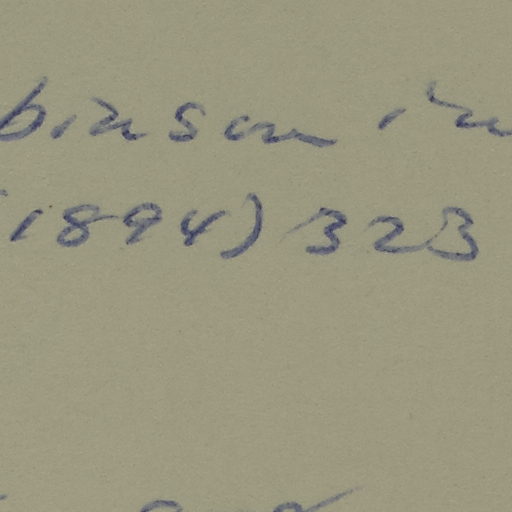 binson in
(1894) 323